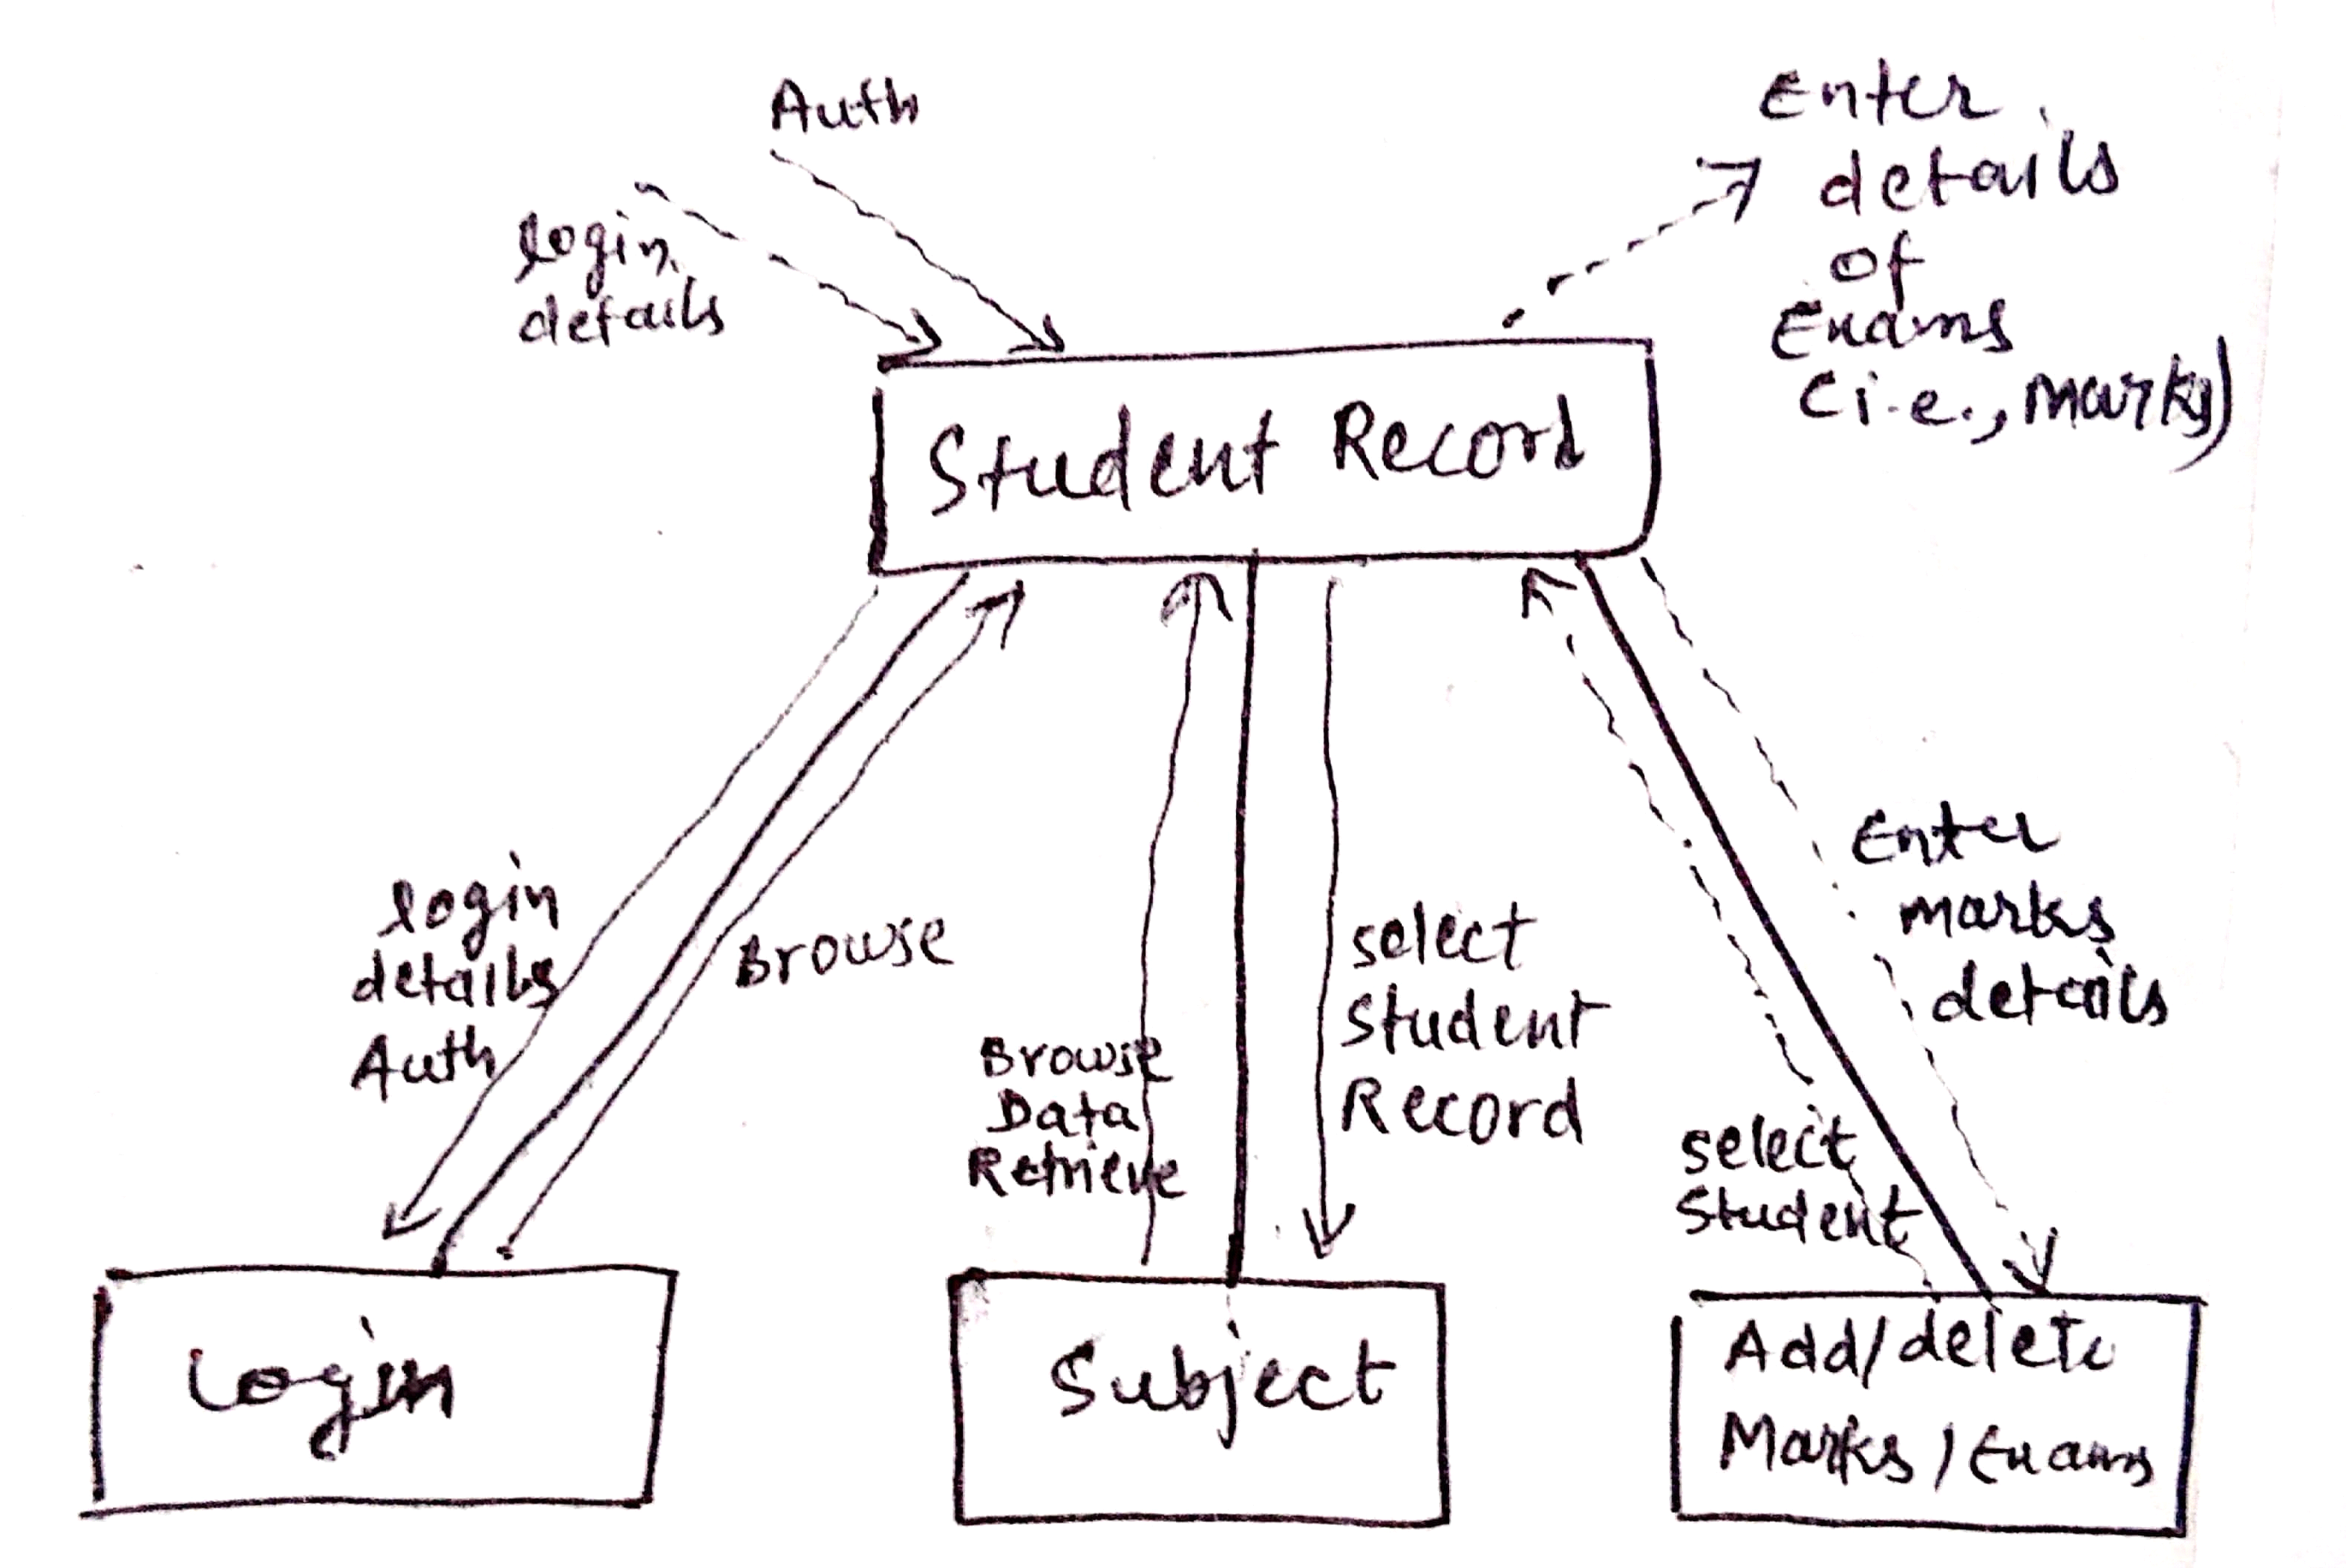 Auth
login
details
Enter
details
of
Exams
(i.e., marks)
Student Record
login
details
Auth
Browse
Browse
Data
Retrieve
select
student
Record
Enter
marks
details
select
student
Login
Subject
Add/delete
Marks/Exams